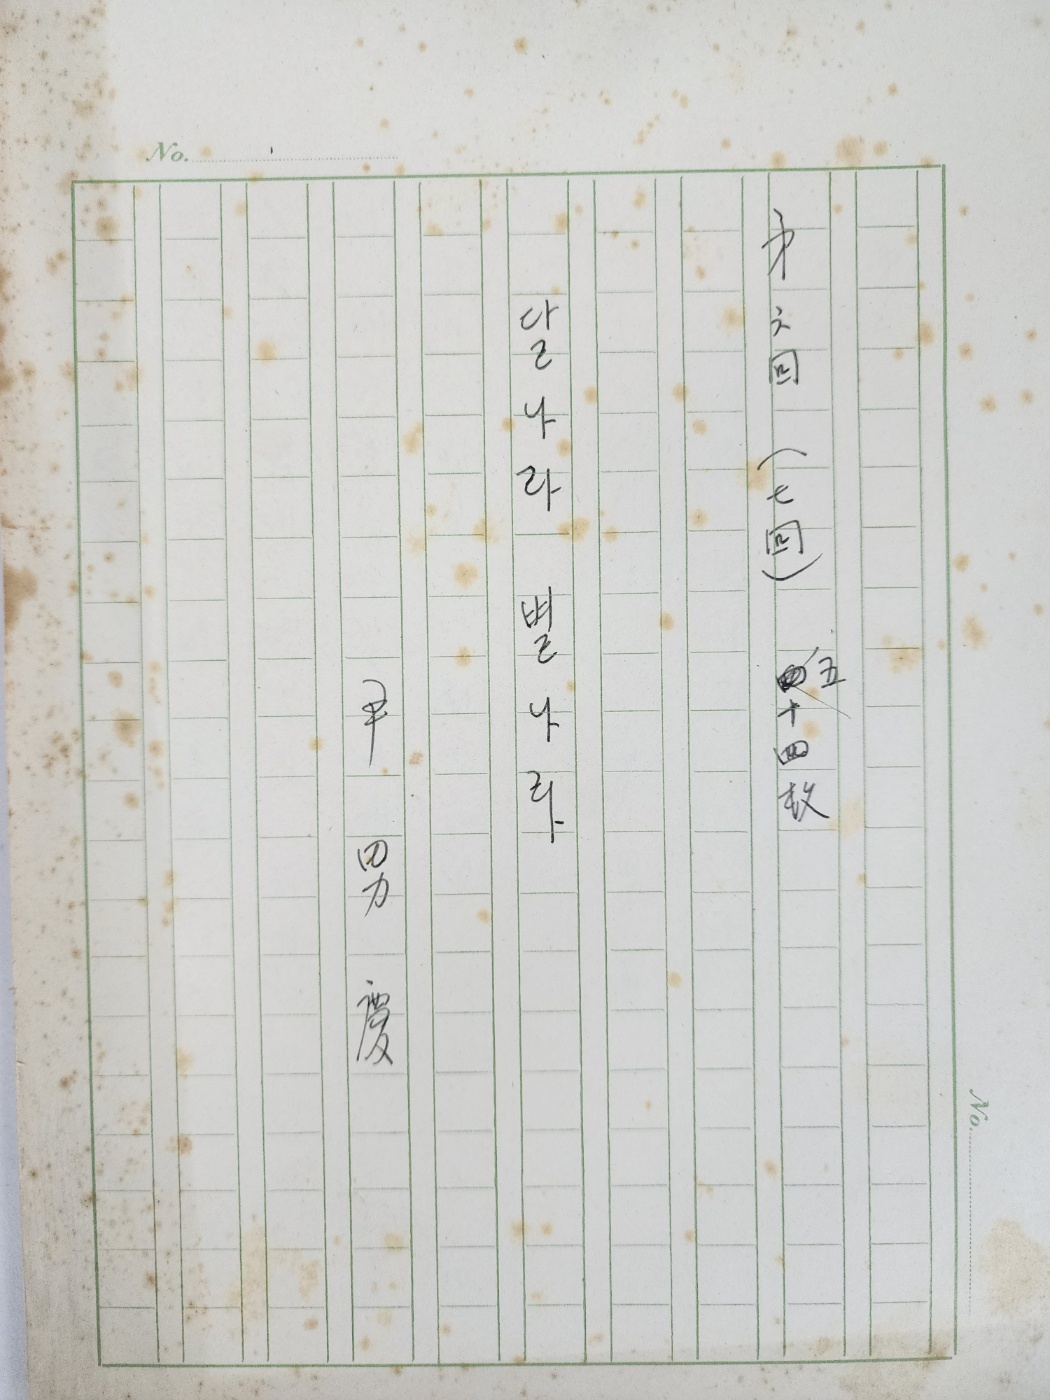 No.
第六回 (七回) 五十四枚
달나라 별나라
尹男慶
No.